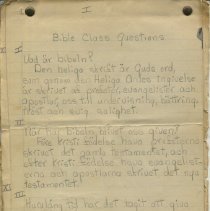 I
Bible Class Questions.
I
Vad är bibeln?
Den heliga skrift är Guds ord,
som genom den Helige Andes ingivelse
är skrivet av profeter, evangelister och
apostlar, oss till undervisning, bättring,
tröst och evig salighet.
II
När har bibeln blivit oss given?
Före Kristi födelse hava profeterna
skrivit det gamla testamentet, och
efter Kristi födelse hava evangelist-
erna och apostlarna skrivit det nya
testamentet.
III
Huru lång tid har det tagit att giva